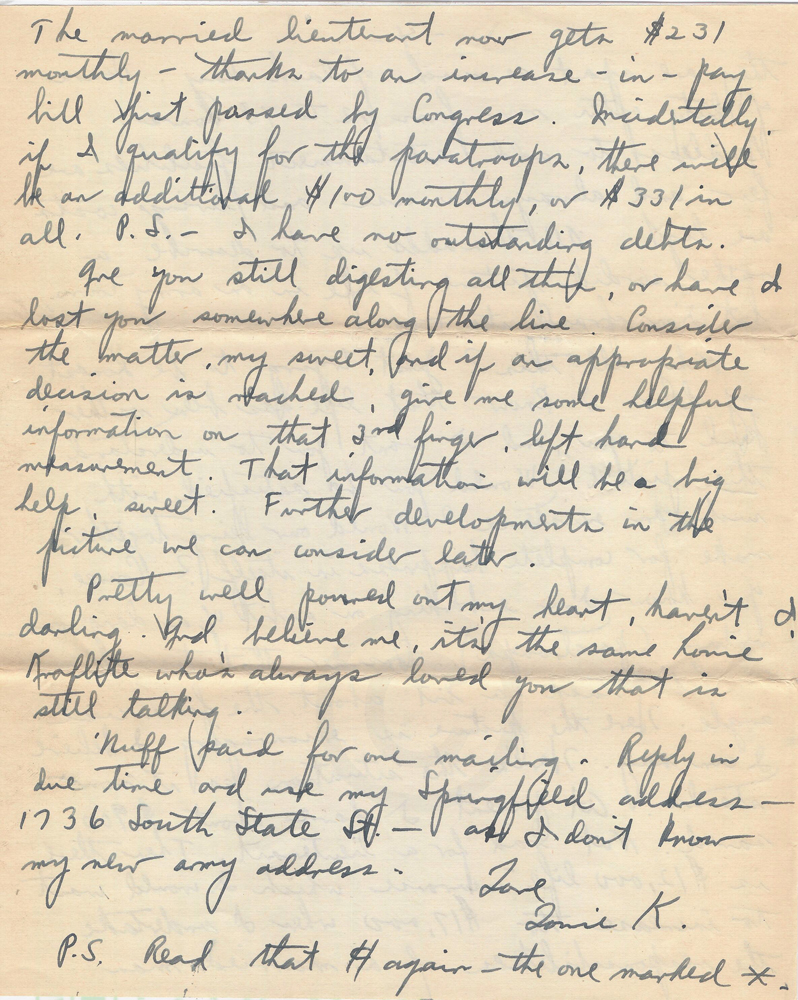 The married lieutenant now gets $231
monthly – thanks to an increase-in-pay
bill just passed by Congress. Incidentally,
if I qualify for the paratroops, there will
be an additional $100 monthly, or $331 in
all. P.S. – I have no outstanding debts.
Are you still digesting all this, or have I
lost you somewhere along the line. Consider
the matter, my sweet, and if an appropriate
decision is reached, give me some helpful
information on that 3rd finger, left hand
measurement. That information will be a big
help, sweet. Further developments in the
picture we can consider later.
Pretty well poured out my heart, haven't I
darling. And believe me, it's the same
who's always loved you that is
still talking.
'Nuff said for one mailing. Reply in
due time and use my Springfield address –
1736 South State St. – as I don't know
my new army address.
Love
K.
P.S. Read that ¶ again – the one marked *.